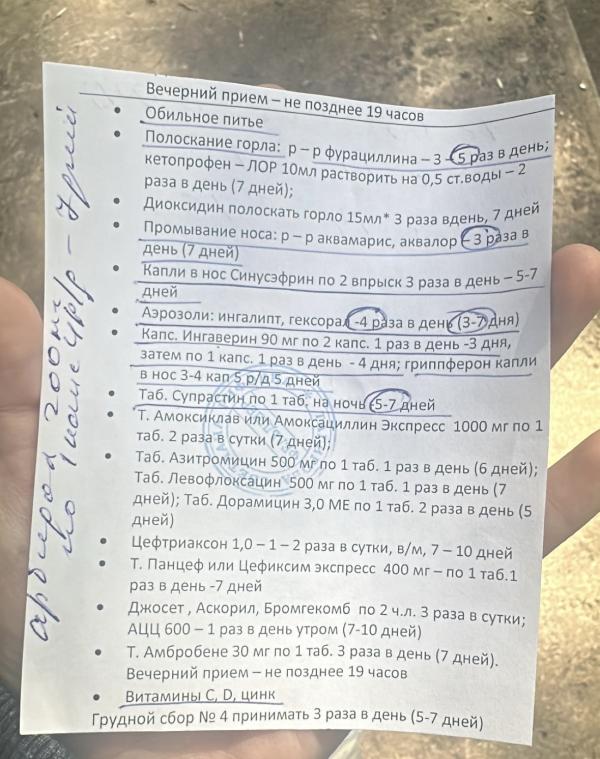 Вечерний прием – не позднее 19 часов
• Обильное питье
• Полоскание горла: р – р фурациллина – 3 – 5 раз в день;
кетопрофен – ЛОР 10мл растворить на 0,5 ст.воды – 2
раза в день (7 дней);
• Диоксидин полоскать горло 15мл* 3 раза вдень, 7 дней
• Промывание носа: р – р аквамарис, аквалор – 3 раза в
день (7 дней)
• Капли в нос Синусэфрин по 2 впрыск 3 раза в день – 5-7
дней
• Аэрозоли: ингалипт, гексорал -4 раза в день (3-7 дня)
• Капс. Ингаверин 90 мг по 2 капс. 1 раз в день -3 дня,
затем по 1 капс. 1 раз в день - 4 дня; гриппферон капли
в нос 3-4 кап 5 р/д 5 дней
• Таб. Супрастин по 1 таб. на ночь -5-7 дней
• Т. Амоксиклав или Амоксациллин Экспресс 1000 мг по 1
таб. 2 раза в сутки (7 дней);
• Таб. Азитромицин 500 мг по 1 таб. 1 раз в день (6 дней);
Таб. Левофлоксацин 500 мг по 1 таб. 1 раз в день (7
дней); Таб. Дорамицин 3,0 МЕ по 1 таб. 2 раза в день (5
дней)
• Цефтриаксон 1,0 – 1 – 2 раза в сутки, в/м, 7 – 10 дней
• Т. Панцеф или Цефиксим экспресс 400 мг – по 1 таб.1
раз в день -7 дней
• Джосет , Аскорил, Бромгекомб по 2 ч.л. 3 раза в сутки;
АЦЦ 600 – 1 раз в день утром (7-10 дней)
• Т. Амбробене 30 мг по 1 таб. 3 раза в день (7 дней).
Вечерний прием – не позднее 19 часов
• Витамины С, D, цинк
Грудной сбор № 4 принимать 3 раза в день (5-7 дней)
арбидол 200мг
по 1 капс 4р/д – 7 дней